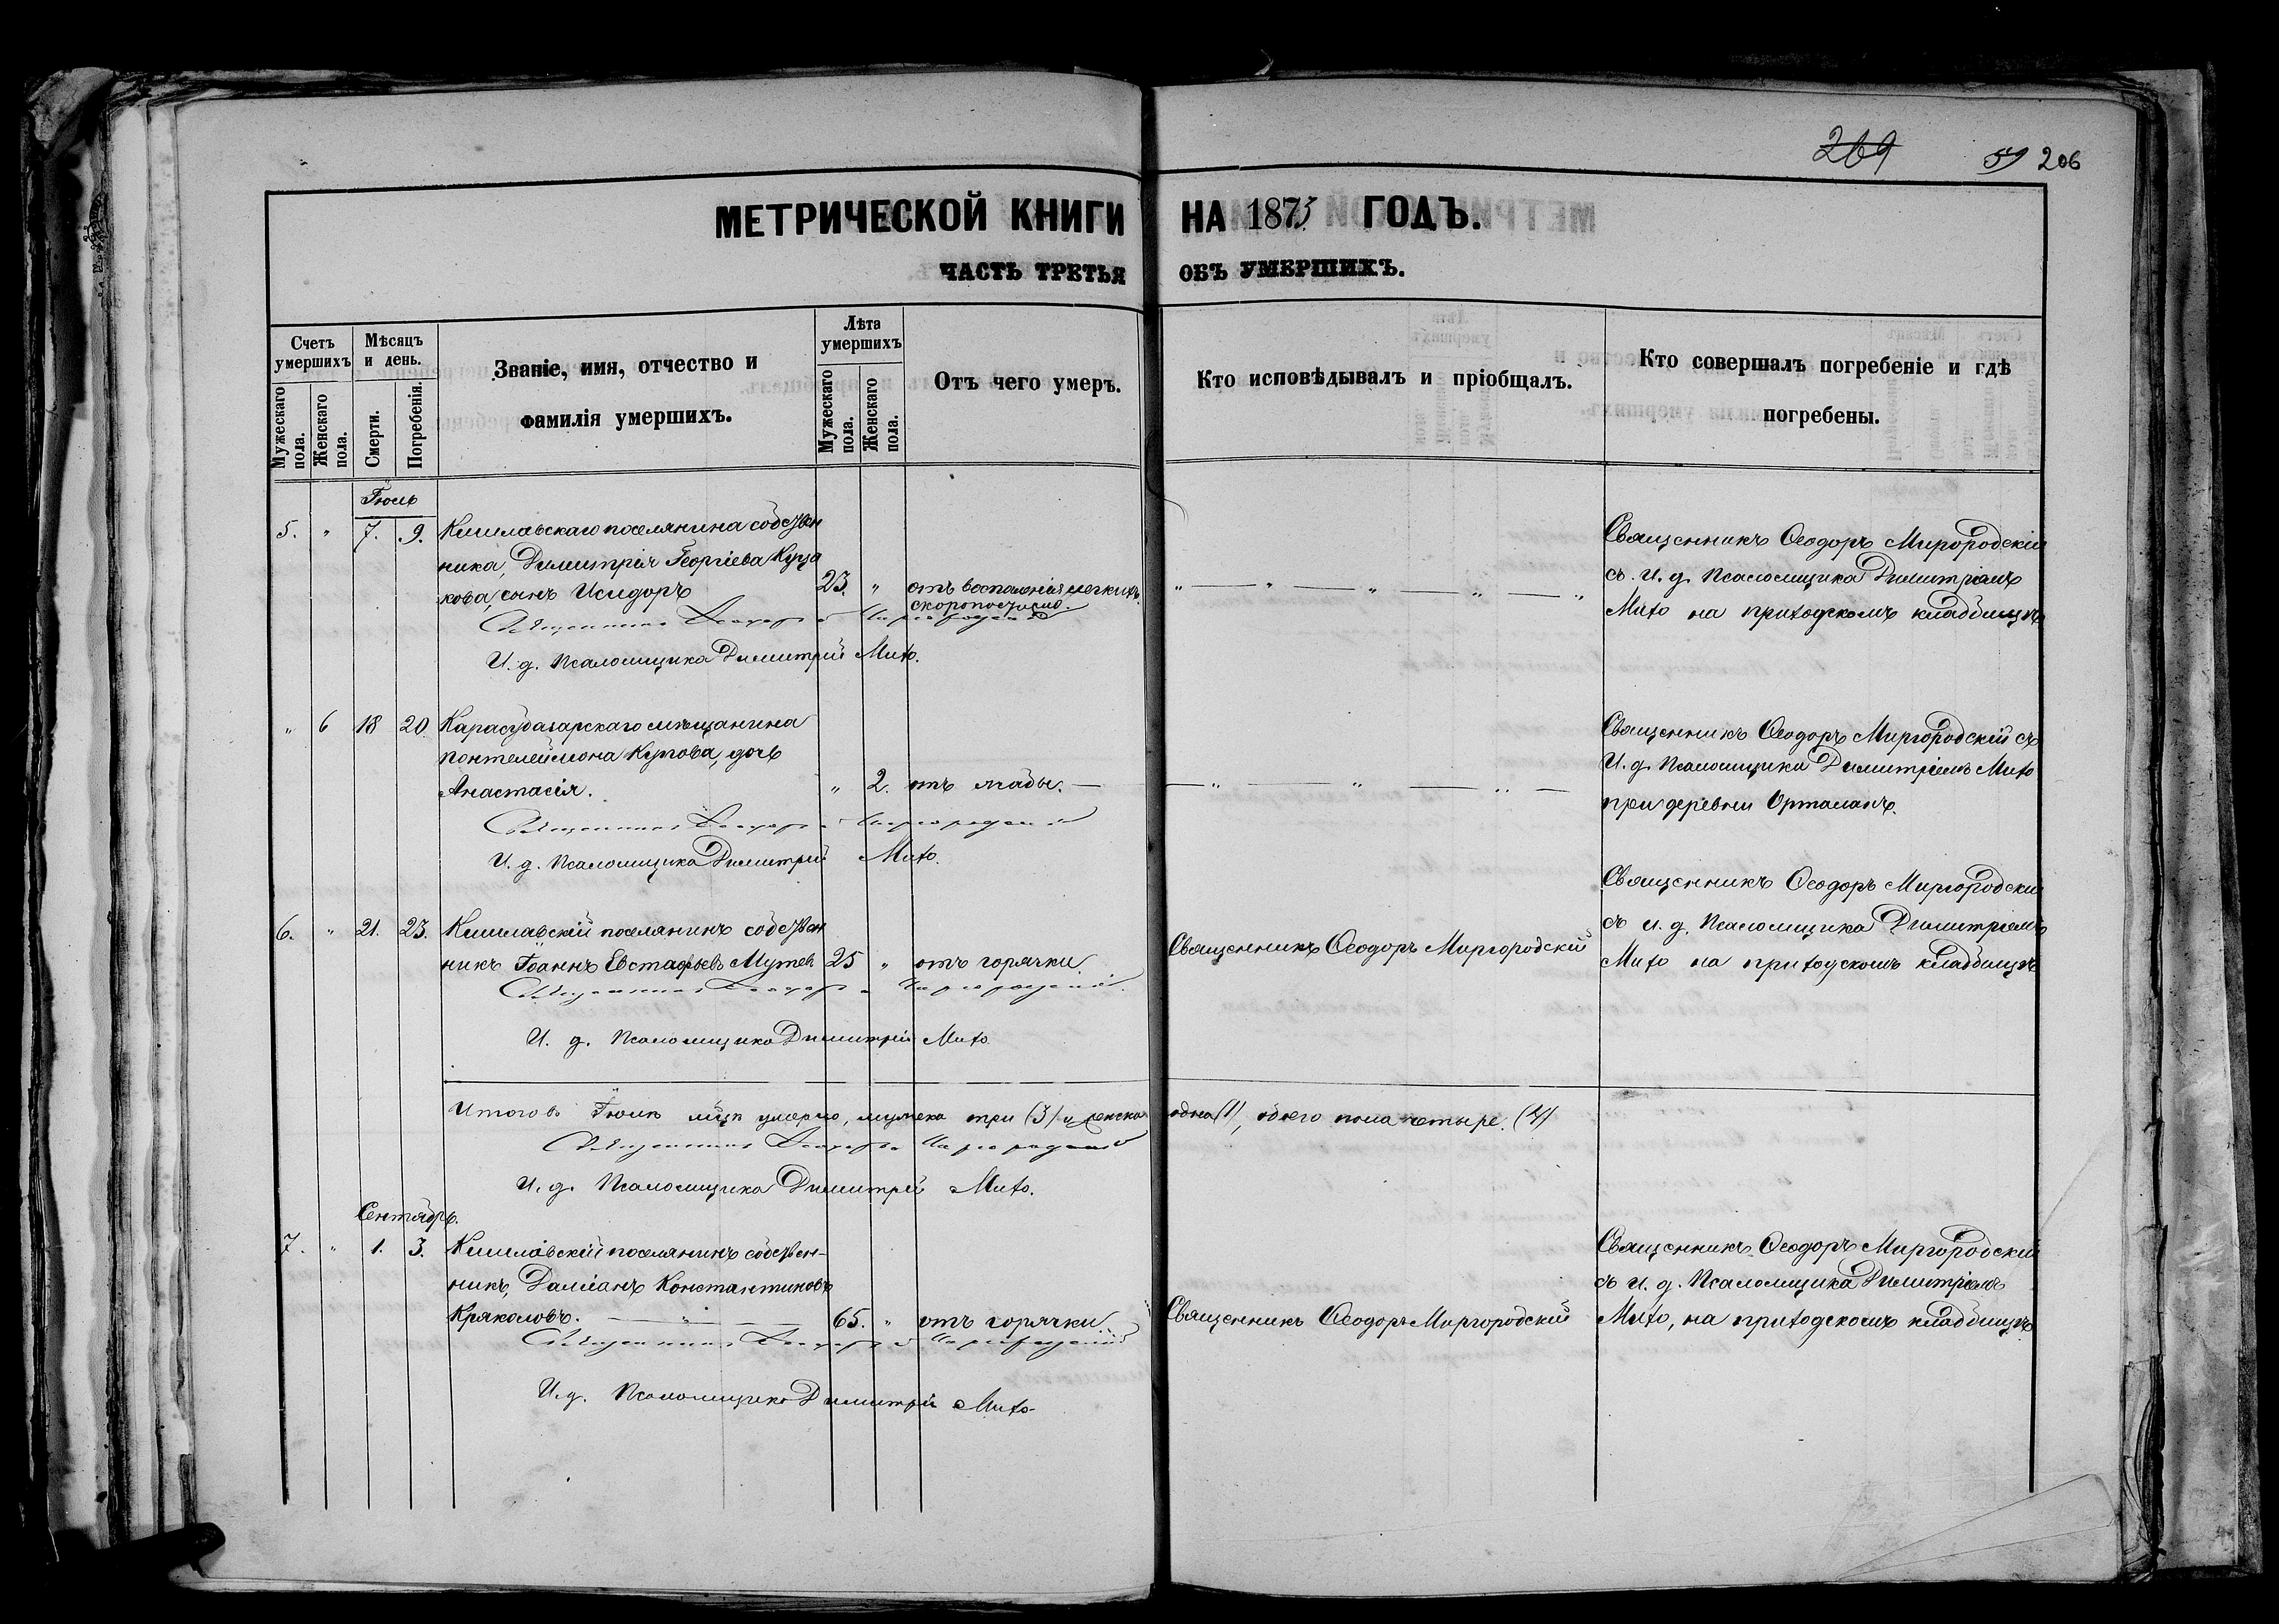 269 59 206
МЕТРИЧЕСКОЙ КНИГИ НА 1875 ГОДЪ.
ЧАСТЬ ТРЕТЬЯ ОБЪ УМЕРШИХЪ.
Счетъ умершихъ
Мужескаго пола.
Женскаго пола.
Мѣсяцъ и день.
Смерти.
Погребенія.
Званіе, имя, отчество и
фамилія умершихъ.
Лѣта умершихъ
Мужескаго пола.
Женскаго пола.
Отъ чего умеръ.
Кто исповѣдывалъ и пріобщалъ.
Кто совершалъ погребеніе и гдѣ
погребены.
Іюль
5. " 7. 9. Кишлавскаго поселянина собствен Священникъ Ѳеодоръ Миргородскій
ника, Димитрія Георгіева съ И. д. Псаломщика Димитріемъ
кова, сынъ Исидоръ 23. " отъ воспаленія легкихъ " " " " " Мито на приходскомъ кладбищѣ
скоропостижно.
Священникъ Ѳеодоръ Миргородскій
И. д. Псаломщика Димитрій Мито.
" 6 18 20 Карасубазарскаго мѣщанина Священникъ Ѳеодоръ Миргородскій съ
Пантелеймона дочь И. д. Псаломщика Димитріемъ Мито
Анастасія. " 2. отъ жабы. — " " " при деревни Орталанъ.
Священникъ Ѳеодоръ Миргородскій
И. д. Псаломщика Димитрій Мито.
6. " 21. 23. Кишлавскій поселянинъ собствен Священникъ Ѳеодоръ Миргородскій
никъ Іоаннъ Евстафьевъ 25 " отъ горячки. Священникъ Ѳеодоръ Миргородскій съ и. д. Псаломщика Димитріемъ
Мито на приходскомъ кладбищѣ
Священникъ Ѳеодоръ Миргородскій
И. д. Псаломщика Димитрій Мито
Итого въ Іюлѣ м͠цѣ умерло, мужеска три (3) и женска одна (1), обоего пола четыре. (4)
Священникъ Ѳеодоръ Миргородскій
И. д. Псаломщика Димитрій Мито.
Сентябрь.
7. " 1. 3. Кишлавскій поселянинъ собствен- Священникъ Ѳеодоръ Миргородскій
никъ, Даміанъ Константиновъ съ И. д. Псаломщика Димитріемъ
Кряколовъ. — " — 65. " отъ горячки. Священникъ Ѳеодоръ Миргородскій Мито, на приходскомъ кладбищѣ
Священникъ Ѳеодоръ Миргородскій
И. д. Псаломщика Димитрій Мито